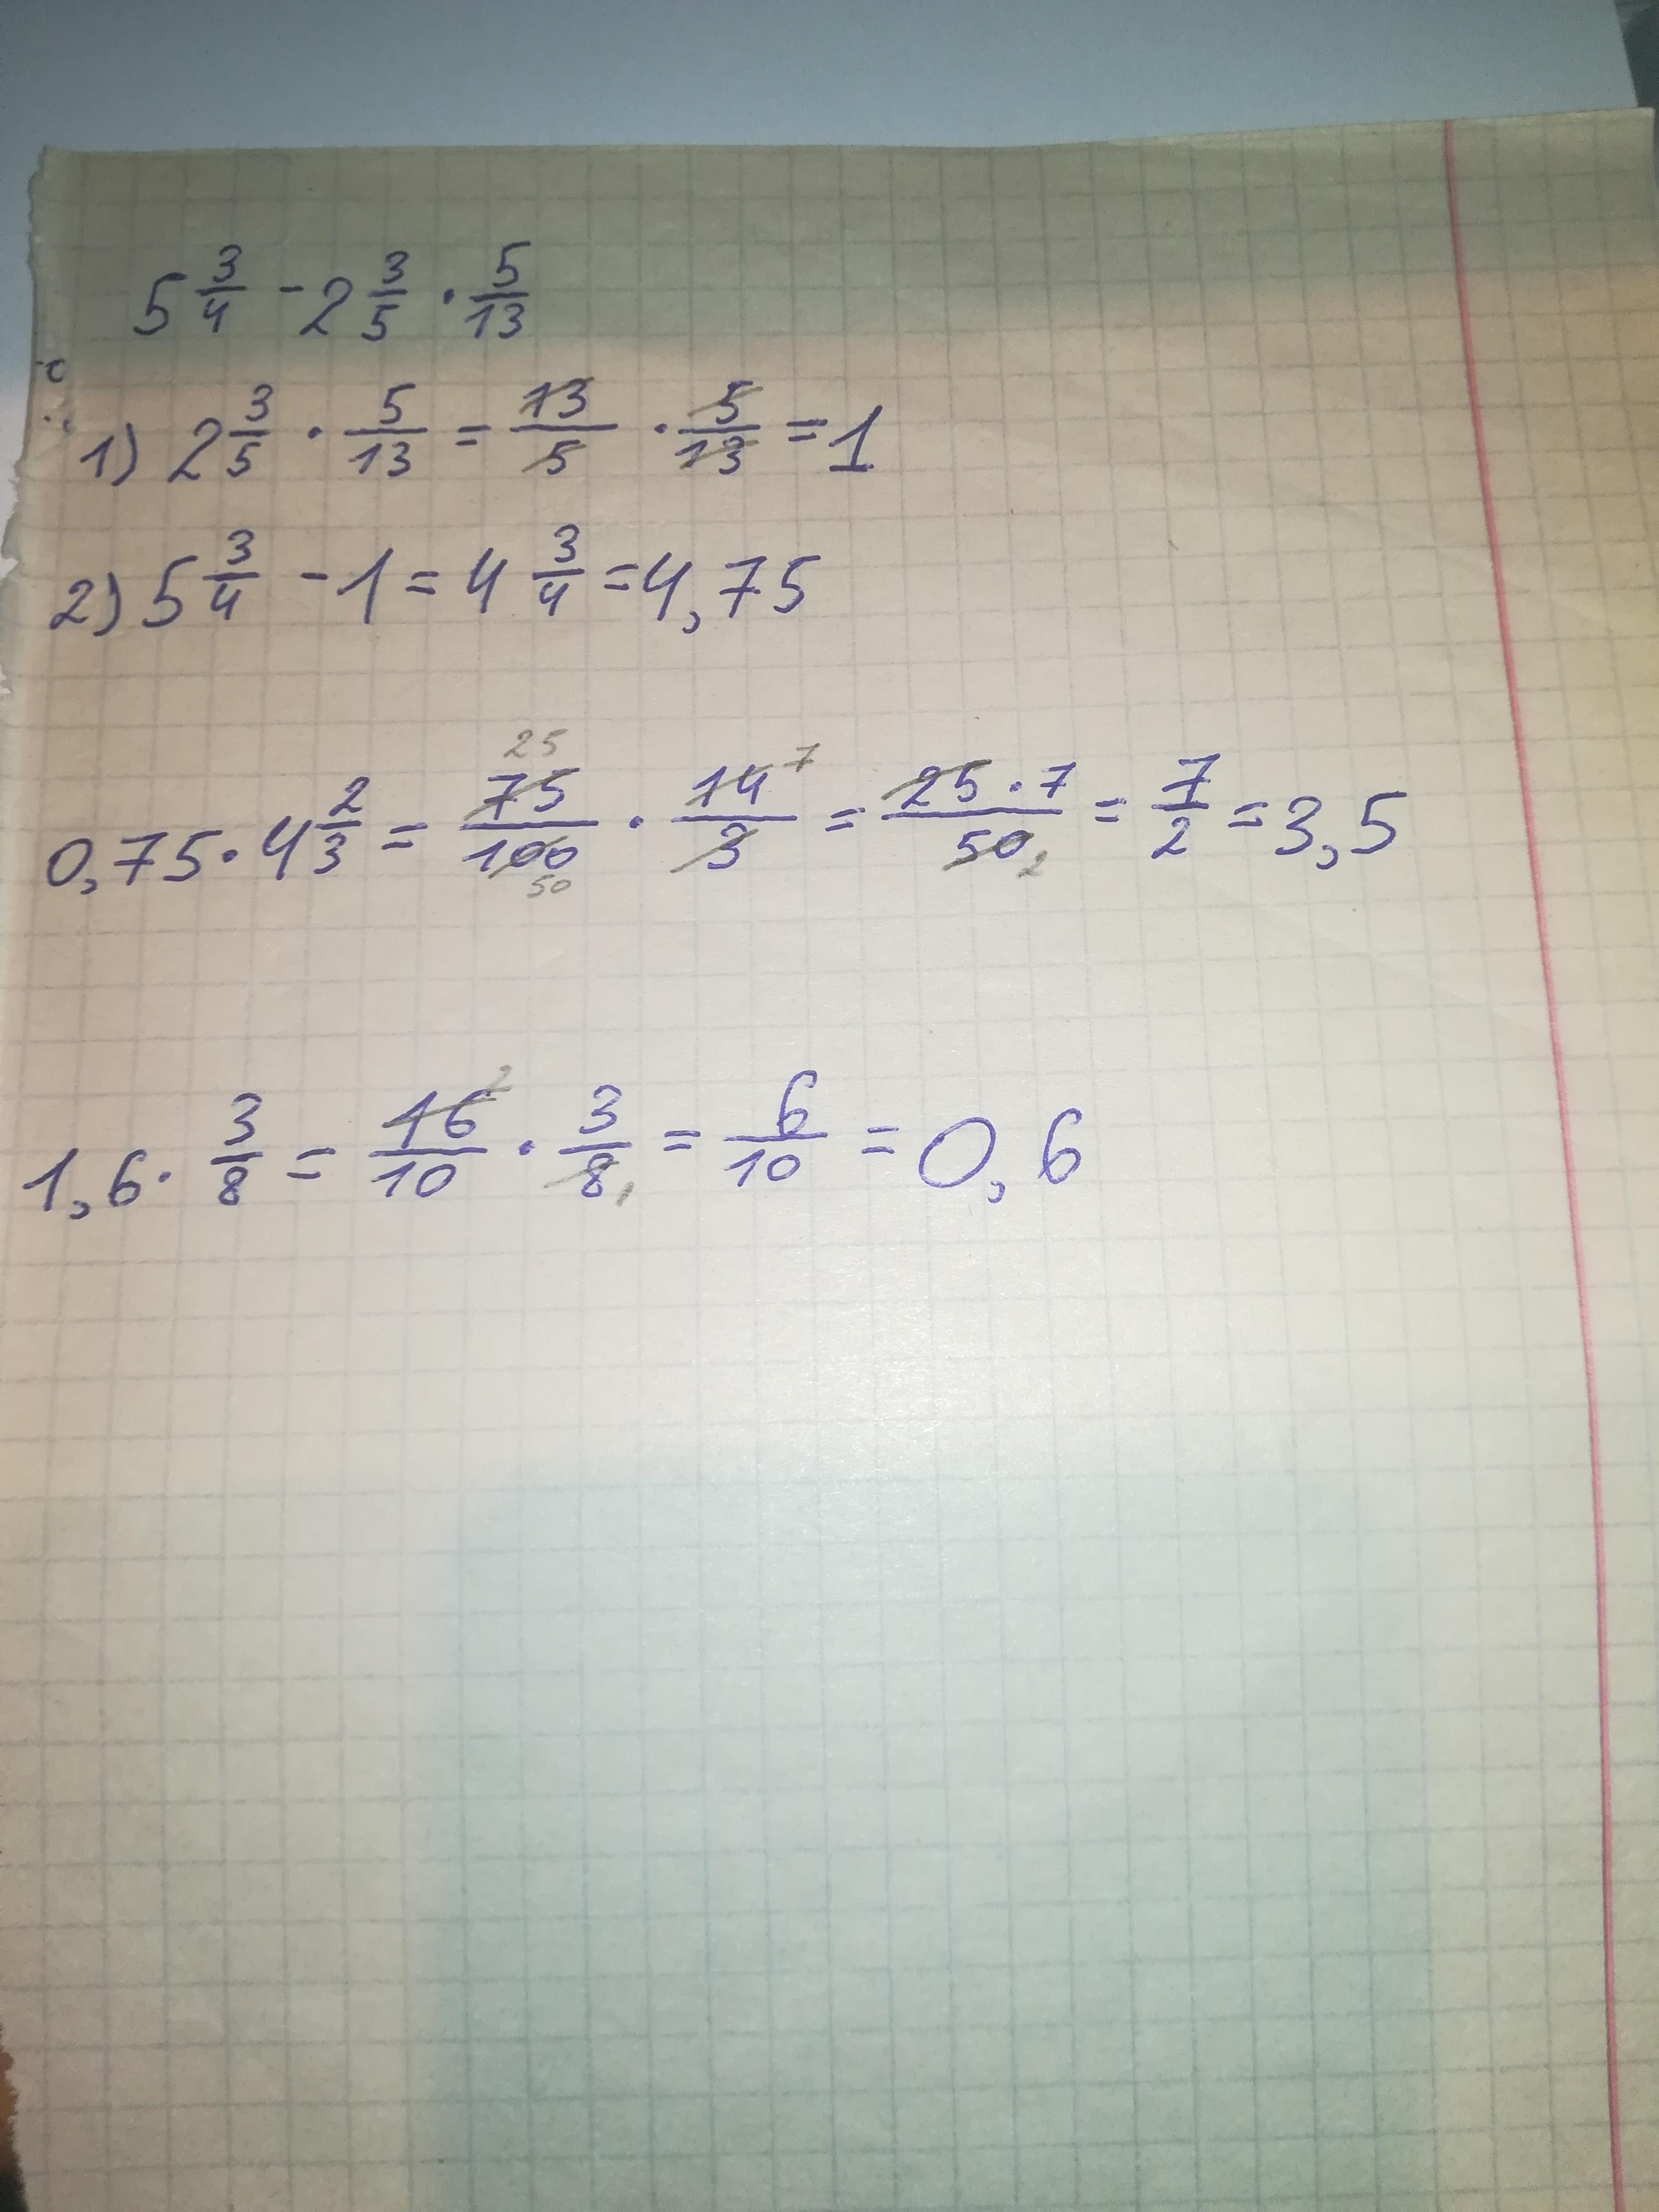 5 3/4 - 2 3/5 · 5/13
1) 2 3/5 · 5/13 = 13/5 · 5/13 = 1
2) 5 3/4 - 1 = 4 3/4 = 4,75
25 7
0,75 · 4 2/3 = 75/100 · 14/3 = 25·7/50 = 7/2 = 3,5
50 2
2
1,6 · 3/8 = 16/10 · 3/8 = 6/10 = 0,6
1